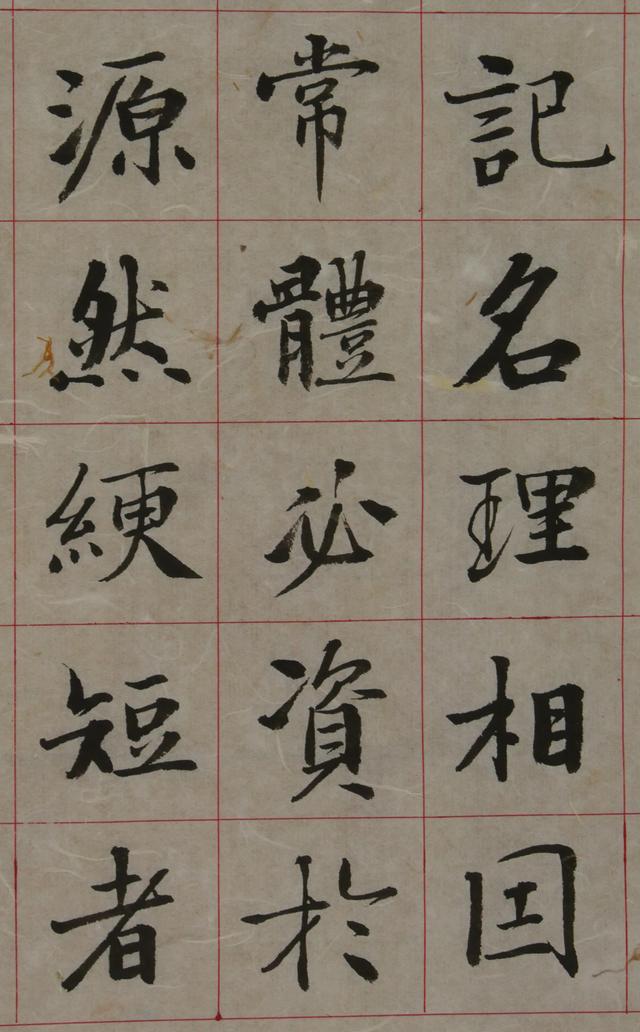 記名理相因
常體必資於
源然綆短者